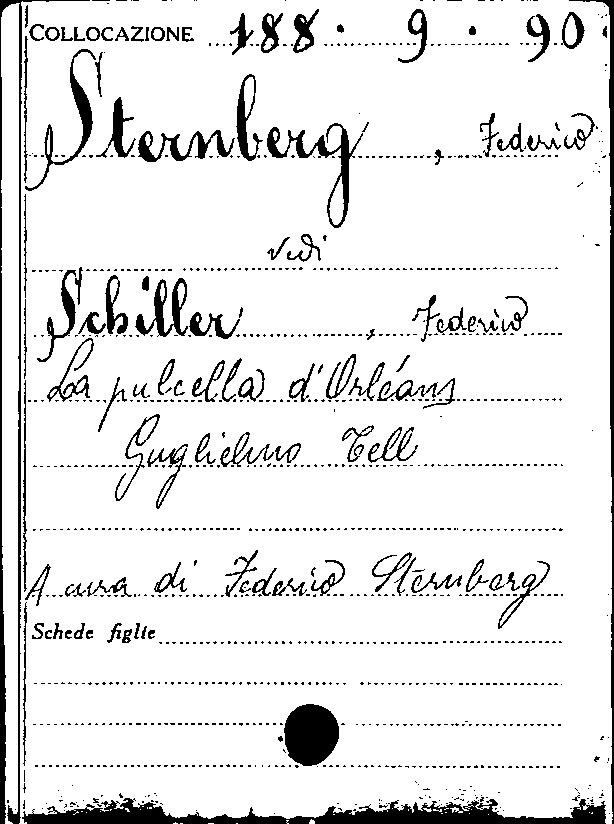 COLLOCAZIONE 188 . 9 . 90.
Sternberg , Federico
vedi
Schiller , Federico
La pulcella d'Orléans
Guglielmo Tell
A cura di Federico Sternberg
Schede figlie